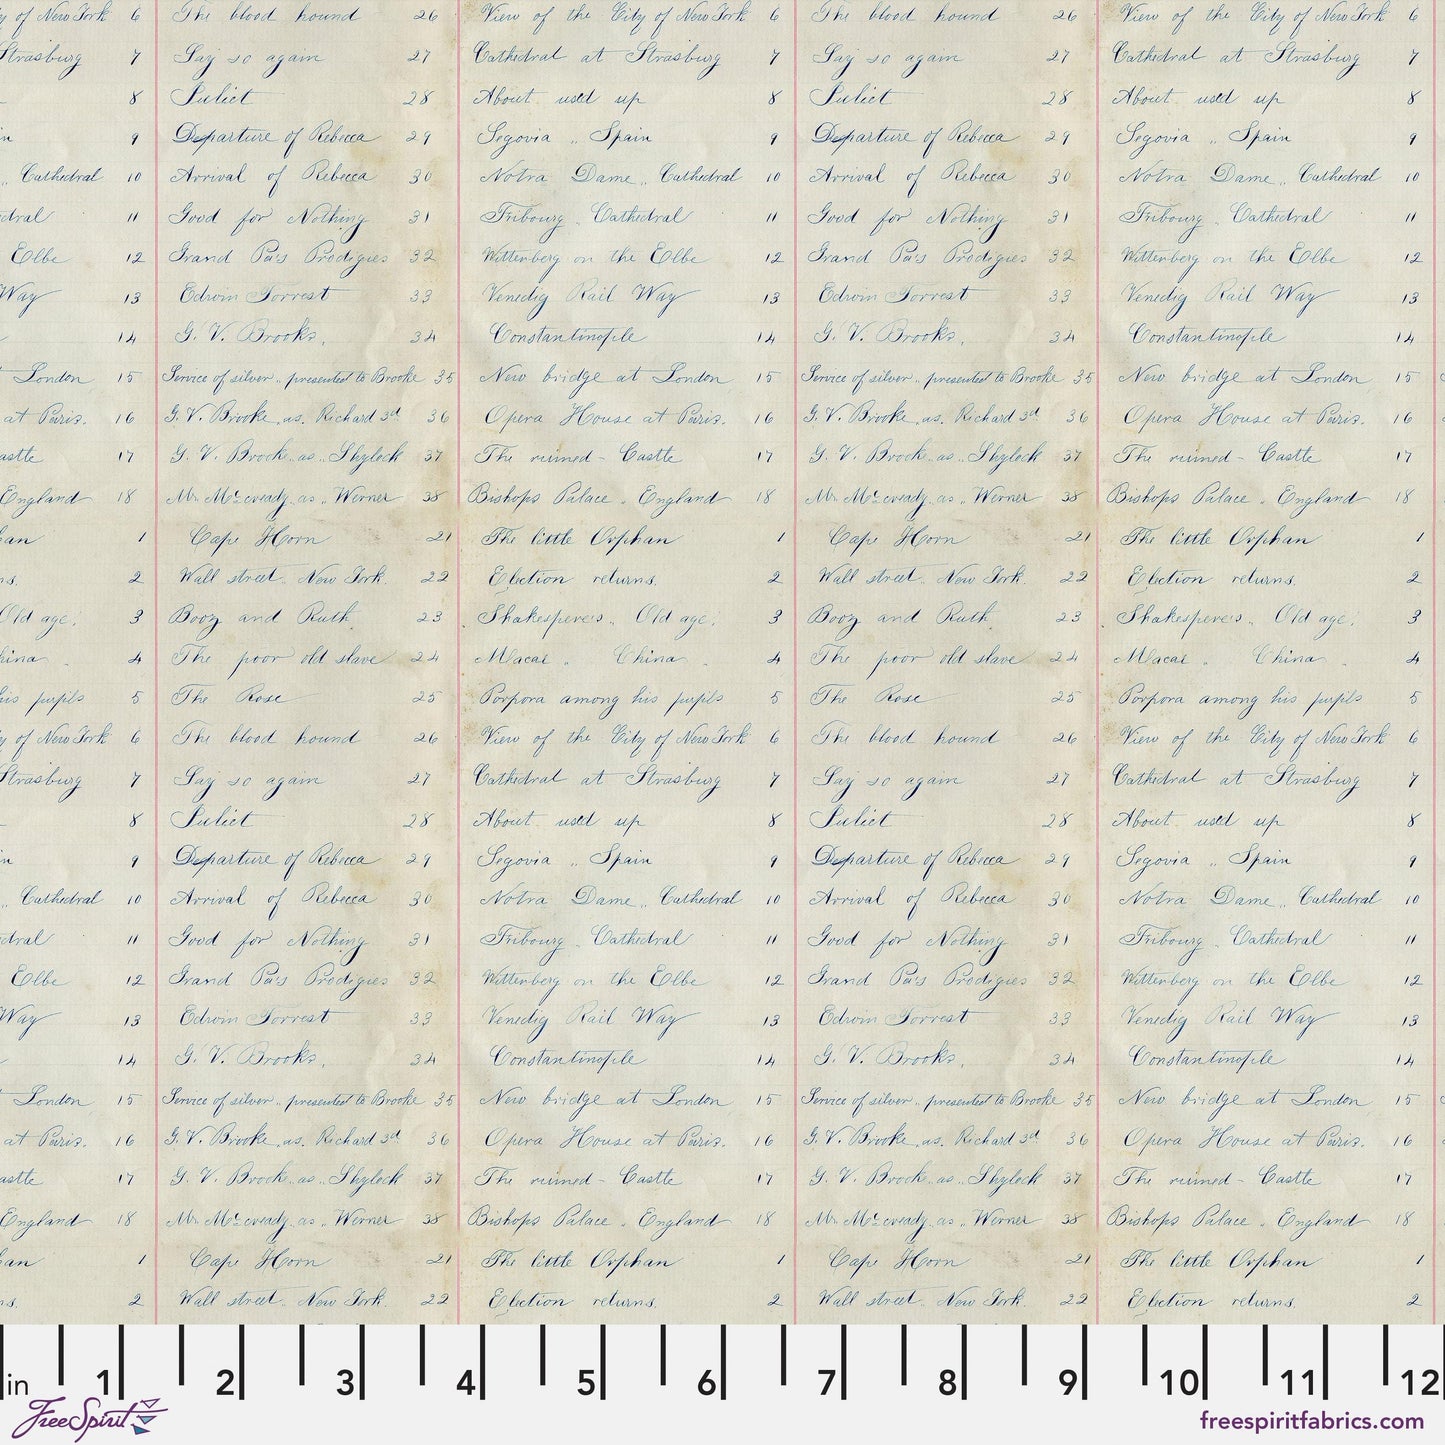 y of New York 6 The blood hound 26 View of the City of New York 6 The blood hound 26 View of the City of New York 6
Strasburg 7 Say so again 27 Cathedral at Strasburg 7 Say so again 27 Cathedral at Strasburg 7
8 Juliet 28 About used up 8 Juliet 28 About used up 8
in 9 Departure of Rebecca 29 Segovia „ Spain 9 Departure of Rebecca 29 Segovia „ Spain 9
„ Cathedral 10 Arrival of Rebecca 30 Notra Dame „ Cathedral 10 Arrival of Rebecca 30 Notra Dame „ Cathedral 10
dral 11 Good for Nothing 31 Fribourg „ Cathedral 11 Good for Nothing 31 Fribourg „ Cathedral 11
Elbe 12 Grand Pa's Prodigies 32 Wittenberg on the Elbe 12 Grand Pa's Prodigies 32 Wittenberg on the Elbe 12
Way 13 Edwin Forrest 33 Venedig Rail Way 13 Edwin Forrest 33 Venedig Rail Way 13
14 G. V. Brooks, 34 Constantinople 14 G. V. Brooks, 34 Constantinople 14
t London 15 Service of silver „ presented to Brooke 35 New bridge at London 15 Service of silver „ presented to Brooke 35 New bridge at London 15
at Paris. 16 G. V. Brooke „ as. Richard 3d 36 Opera House at Paris. 16 G. V. Brooke „ as. Richard 3d 36 Opera House at Paris. 16
astle 17 G. V. Brooke „ as „ Shylock 37 The ruined - Castle 17 G. V. Brooke „ as „ Shylock 37 The ruined - Castle 17
England 18 Mr. Mc cready „ as „ Werner 38 Bishops Palace „ England 18 Mr. Mc cready „ as „ Werner 38 Bishops Palace „ England 18
an 1 Cape Horn 21 The little Orphan 1 Cape Horn 21 The little Orphan 1
ns. 2 Wall street. New York. 22 Election returns. 2 Wall street. New York. 22 Election returns. 2
Old age. 3 Booz and Ruth 23 Shakespere's „ Old age. 3 Booz and Ruth 23 Shakespere's „ Old age. 3
hina 4 The poor old slave 24 Macai „ China 4 The poor old slave 24 Macai „ China 4
his pupils 5 The Rose 25 Porpora among his pupils 5 The Rose 25 Porpora among his pupils 5
y of New York 6 The blood hound 26 View of the City of New York 6 The blood hound 26 View of the City of New York 6
Strasburg 7 Say so again 27 Cathedral at Strasburg 7 Say so again 27 Cathedral at Strasburg 7
8 Juliet 28 About used up 8 Juliet 28 About used up 8
in 9 Departure of Rebecca 29 Segovia „ Spain 9 Departure of Rebecca 29 Segovia „ Spain 9
„ Cathedral 10 Arrival of Rebecca 30 Notra Dame „ Cathedral 10 Arrival of Rebecca 30 Notra Dame „ Cathedral 10
dral 11 Good for Nothing 31 Fribourg „ Cathedral 11 Good for Nothing 31 Fribourg „ Cathedral 11
Elbe 12 Grand Pa's Prodigies 32 Wittenberg on the Elbe 12 Grand Pa's Prodigies 32 Wittenberg on the Elbe 12
Way 13 Edwin Forrest 33 Venedig Rail Way 13 Edwin Forrest 33 Venedig Rail Way 13
14 G. V. Brooks, 34 Constantinople 14 G. V. Brooks, 34 Constantinople 14
t London 15 Service of silver „ presented to Brooke 35 New bridge at London 15 Service of silver „ presented to Brooke 35 New bridge at London 15
at Paris. 16 G. V. Brooke „ as. Richard 3d 36 Opera House at Paris. 16 G. V. Brooke „ as. Richard 3d 36 Opera House at Paris. 16
astle 17 G. V. Brooke „ as „ Shylock 37 The ruined - Castle 17 G. V. Brooke „ as „ Shylock 37 The ruined - Castle 17
England 18 Mr. Mc cready „ as „ Werner 38 Bishops Palace „ England 18 Mr. Mc cready „ as „ Werner 38 Bishops Palace „ England 18
an 1 Cape Horn 21 The little Orphan 1 Cape Horn 21 The little Orphan 1
ns. 2 Wall street. New York. 22 Election returns. 2 Wall street. New York. 22 Election returns. 2
in 1 2 3 4 5 6 7 8 9 10 11 12
FreeSpirit
freespiritfabrics.com